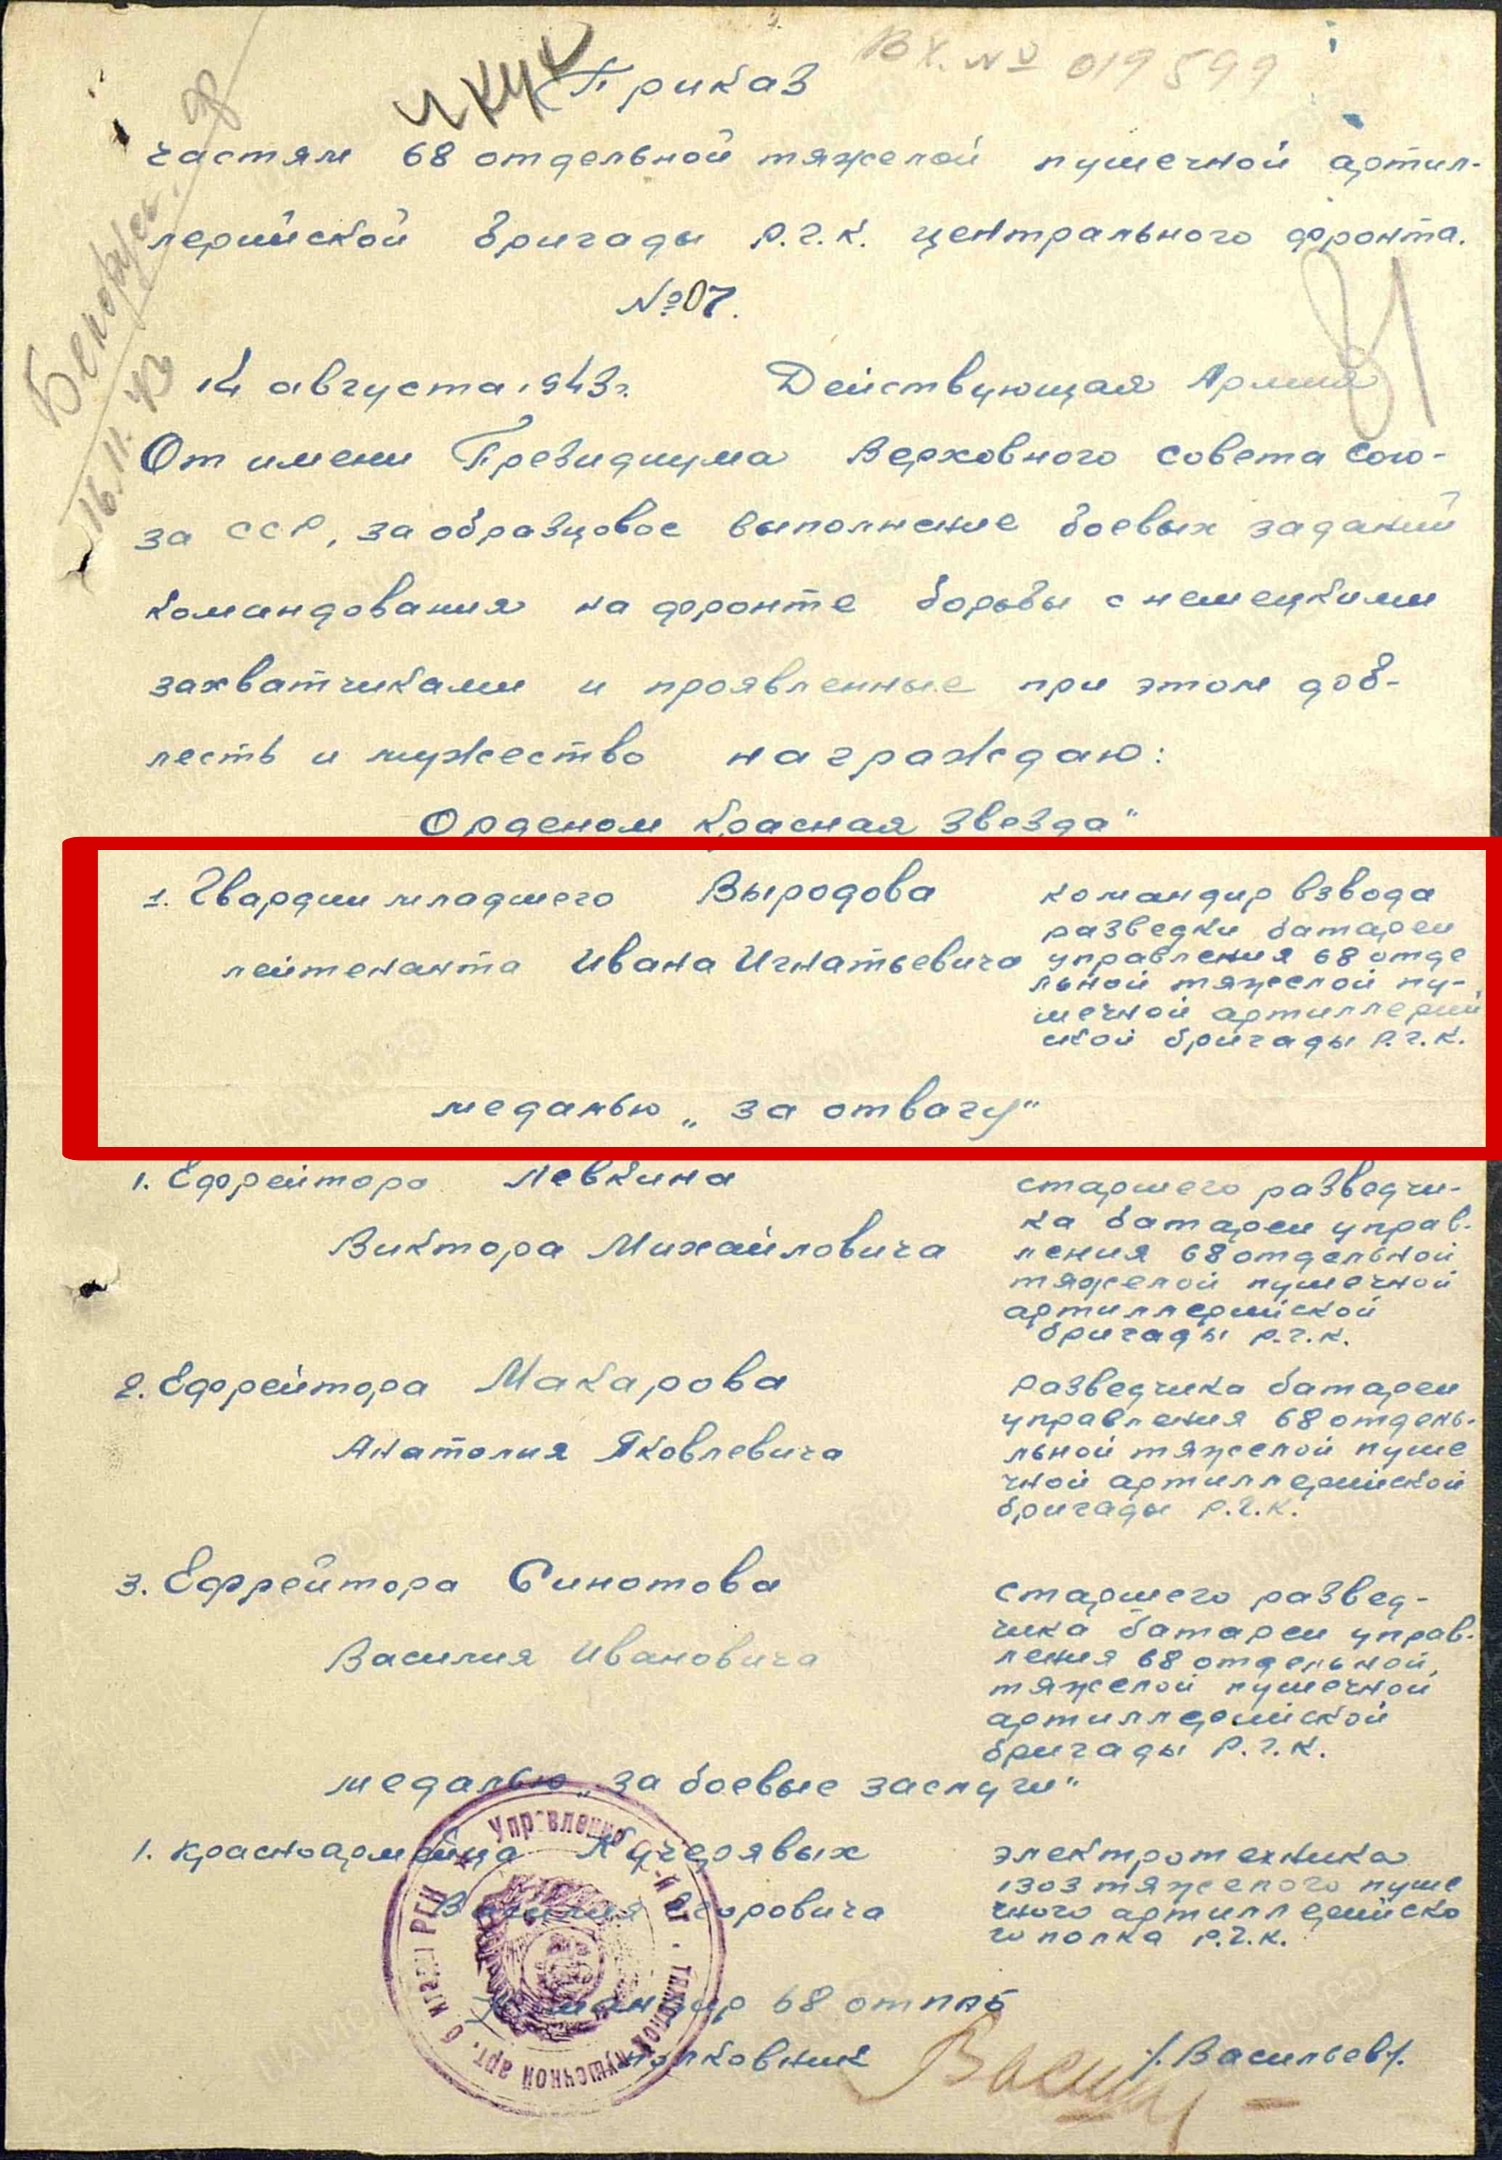 Вх. № 019599
Приказ
частям 68 отдельной тяжелой пушечной артил-
лерийской бригады Р.Г.К. центрального фронта.
№07.
14 августа 1943г. Действующая Армия
81
От имени Президиума Верховного совета Сою-
за ССР, за образцовое выполнение боевых заданий
командования на фронте борьбы с немецкими
захватчиками и проявленные при этом доб-
лесть и мужество награждаю:
Орденом Красная Звезда"
1. Гвардии младшего Выродова командир взвода
лейтенанта Ивана Игнатьевича
разведки батареи
управления 68 отде
льной тяжелой пу-
шечной артиллерий
ской бригады Р.Г.К.
медалью „за отвагу"
1. Ефрейтора Левкина
Виктора Михайловича
старшего разведчи-
ка батареи управ-
ления 68 отдельной
тяжелой пушечной
артиллерийской
бригады Р.Г.К.
2. Ефрейтора Макарова
Анатолия Яковлевича
разведчика батареи
управления 68 отдель-
льной тяжелой пуше
чной артиллерийской
бригады Р.Г.К.
3. Ефрейтора Синотова
Василия Ивановича
старшего развед-
чика батареи управ-
ления 68 отдельной
тяжелой пушечной
артиллерийской
бригады Р.Г.К.
медалью „за боевые заслуги"
1. Красноармейца Кучерявых
Василия Егоровича
электротехника
1303 тяжелого пуше
чного артиллерийско
го полка Р.Г.К.
Командир 68 отпаб
полковник /Васильев/.
16.11.43